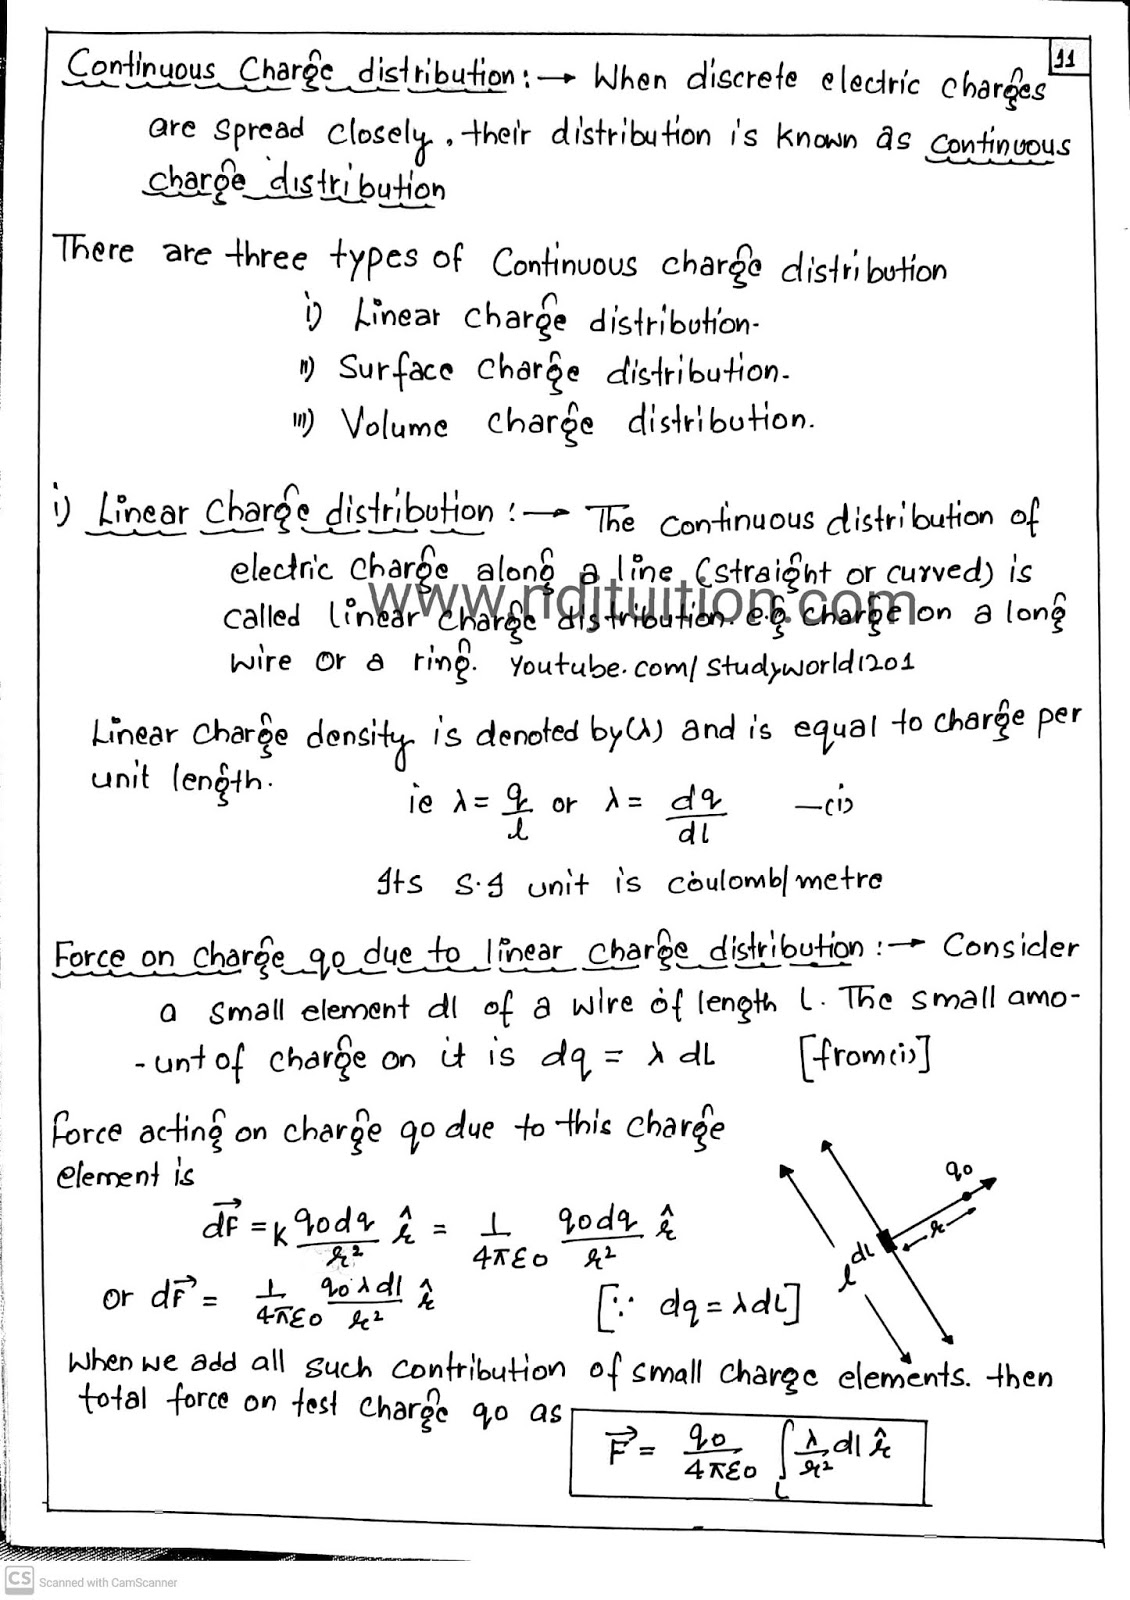 11
Continuous Charge distribution :→ When discrete electric charges
are spread closely, their distribution is known as continuous
charge distribution
There are three types of Continuous charge distribution
i) Linear charge distribution-
ii) Surface charge distribution-
iii) Volume charge distribution.
i) Linear charge distribution :→ The continuous distribution of
electric charge along a line (straight or curved) is
www.ndjtuition.com
called linear charge distribution. e.g charge on a long
wire or a ring. Youtube.com/Studyworld1201
Linear charge density is denoted by (λ) and is equal to charge per
unit length.
ie λ = q/l or λ = dq/dl —(i)
Its S.I unit is coulomb/metre
Force on charge q0 due to linear charge distribution :→ Consider
a small element dl of a wire of length l. The small amo-
-unt of charge on it is dq = λ dL [from(i)]
Force acting on charge q0 due to this charge
element is
q0
r
dL
l
dF⃗ = K q0dq/r² r̂ = 1/4πε0 q0dq/r² r̂
or dF⃗ = 1/4πε0 q0λdl/r² r̂ [∵ dq = λdL]
When we add all such contribution of small charge elements. then
total force on test charge q0 as
F⃗ = q0/4πε0 ∫L λ/r² dl r̂
CS Scanned with CamScanner